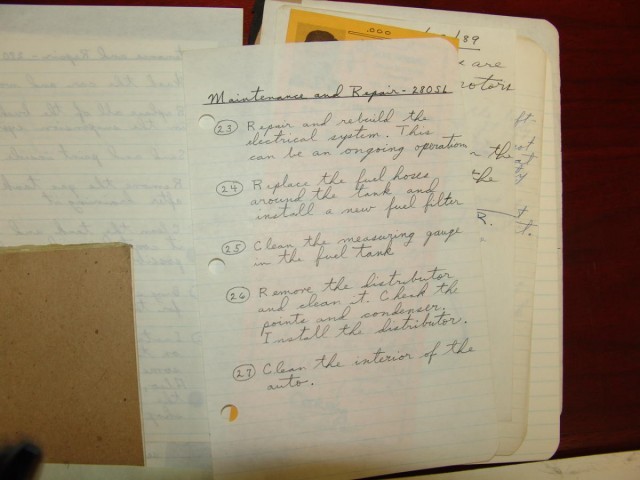 Maintenance and Repair - 280SL
23 Repair and rebuild the
electrical system. This
can be an ongoing operation
24 Replace the fuel hoses
around the tank and
install a new fuel filter
25 Clean the measuring gauge
in the fuel tank
26 Remove the distributor
and clean it. Check the
points and condenser.
Install the distributor.
27 Clean the interior of the
auto.
/89
are
rotors
the
the
R.
ft.